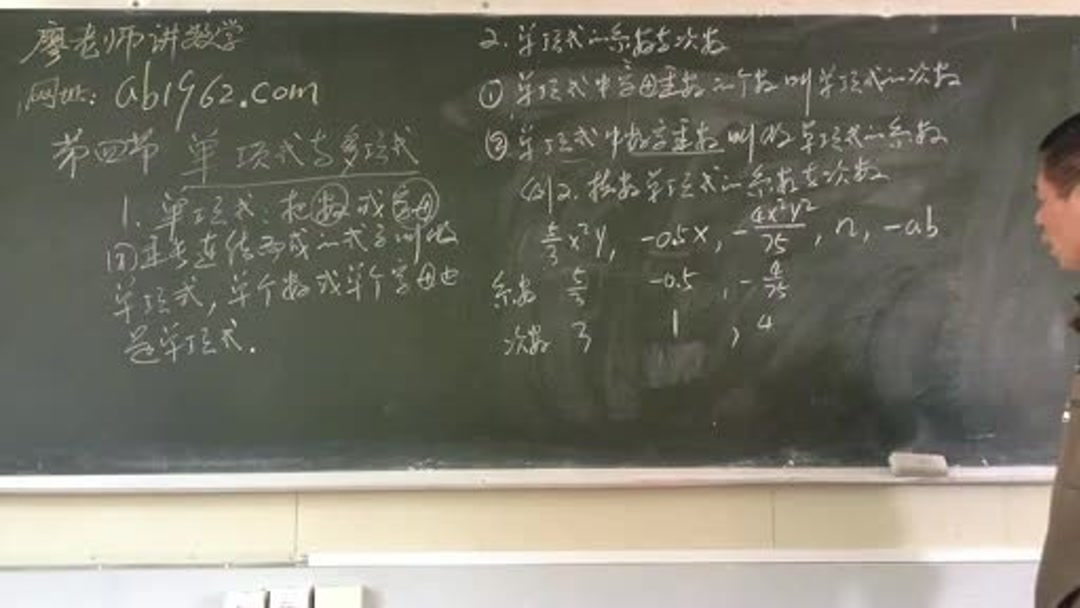 廖老师讲数学
网址: ab1962.com
第四节 单项式与多项式
1. 单项式: 把数或字母
用乘号连结而成的式子叫做
单项式, 单个数或单个字母也
是单项式.
2. 单项式的系数与次数
① 单项式中字母乘数的个数叫单项式的次数
② 单项式中数字乘数叫做单项式的系数
例2. 指数单项式的系数与次数
5/3 x²y, -0.5x, -4x²y²/25, n, -ab
系数 5/3 -0.5 , -4/25
次数 3 1 , 4